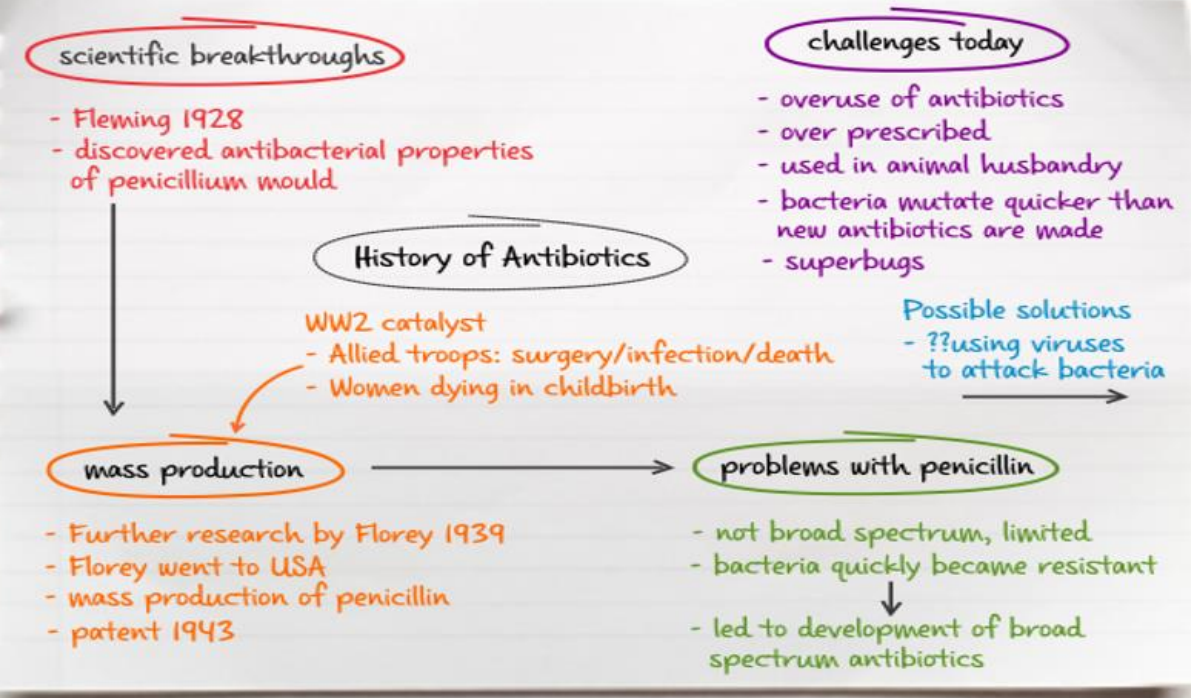 scientific breakthroughs
- Fleming 1928
- discovered antibacterial properties
of penicillium mould
History of Antibiotics
WW2 catalyst
- Allied troops: surgery/infection/death
- Women dying in childbirth
mass production
- Further research by Florey 1939
- Florey went to USA
- mass production of penicillin
- patent 1943
problems with penicillin
- not broad spectrum, limited
- bacteria quickly became resistant
- led to development of broad
spectrum antibiotics
challenges today
- overuse of antibiotics
- over prescribed
- used in animal husbandry
- bacteria mutate quicker than
new antibiotics are made
- superbugs
Possible solutions
- ??using viruses
to attack bacteria